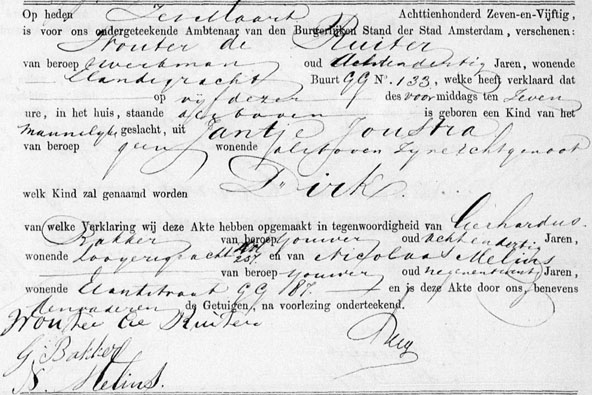 Op heden Zes Maart Achttienhonderd Zeven-en-Vijftig,
is voor ons ondergeteekende Ambtenaar van den Burgerlijken Stand der Stad Amsterdam, verschenen:
Wouter de Ruiter
van beroep werkman oud Achtendertig Jaren, wonende
Elandsgracht Buurt GG No. 133, welke heeft verklaard dat
op vijf dezer des voormiddags ten Zeven
ure, in het huis, staande alsboven is geboren een Kind van het
Mannelijke geslacht, uit Jantje Joustra
van beroep geen wonende alsboven zijne Echtgenoot
welk Kind zal genaamd worden Dirk
van welke Verklaring wij deze Akte hebben opgemaakt in tegenwoordigheid van Gerhardus
Bakker van beroep oud Achtendertig Jaren,
wonende Looyersgracht 257 en van Nicolaas Melins
van beroep oud Jaren,
wonende Elandstraat GG 187 en is deze Akte door ons, benevens
den vader en de Getuigen, na voorlezing onderteekend.
Wouter de Ruiter
G. Bakker
N. Melins.